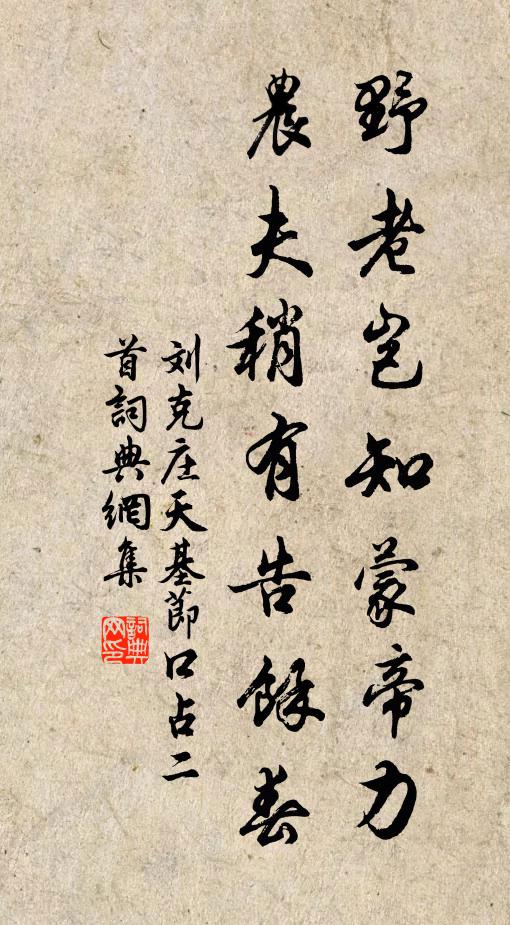 野老岂知蒙帝力
農夫稍有告餘春
刘克庄天基節口占二
首詞典網集
詞典網印